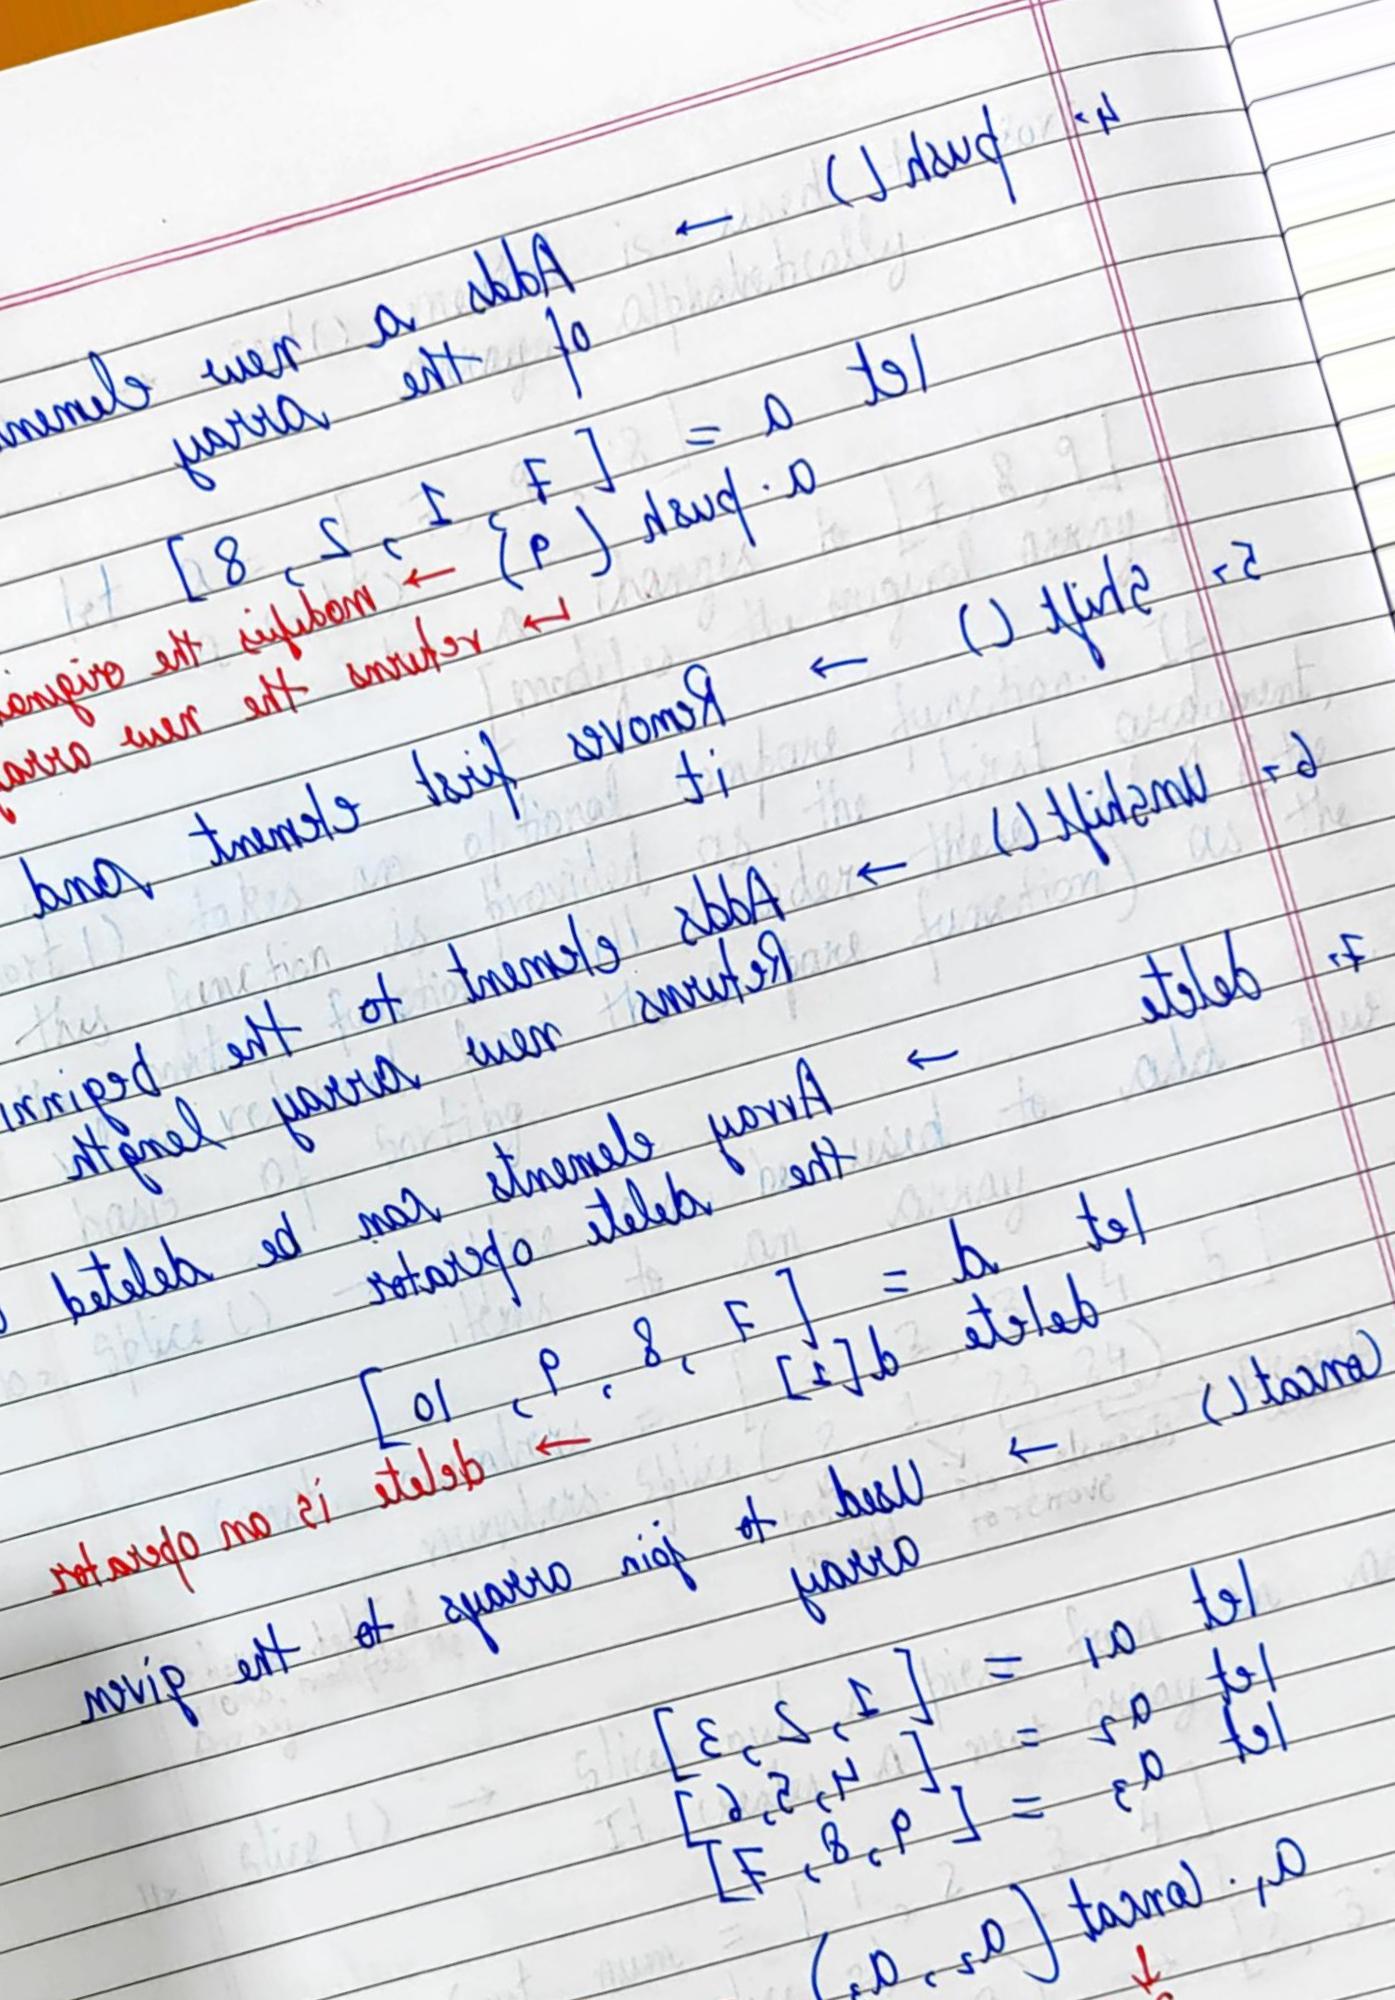 4. push () → Adds a new
of the array
let a = [7, 1, 2, 8]
a.push (9) → modifies the
↳ returns the new
5. Shift () → Removes first element and
it
6. Unshift () → Adds element to the
Returns new array length
7. delete → Array elements can be deleted
the delete operator
let d = [7, 8, 9, 10]
delete d[1] → delete is an operator
Concat () → Used to join arrays to the given
array
let a1 = [1, 2, 3]
let a2 = [4, 5, 6]
let a3 = [9, 8, 7]
a1.concat (a2, a3)